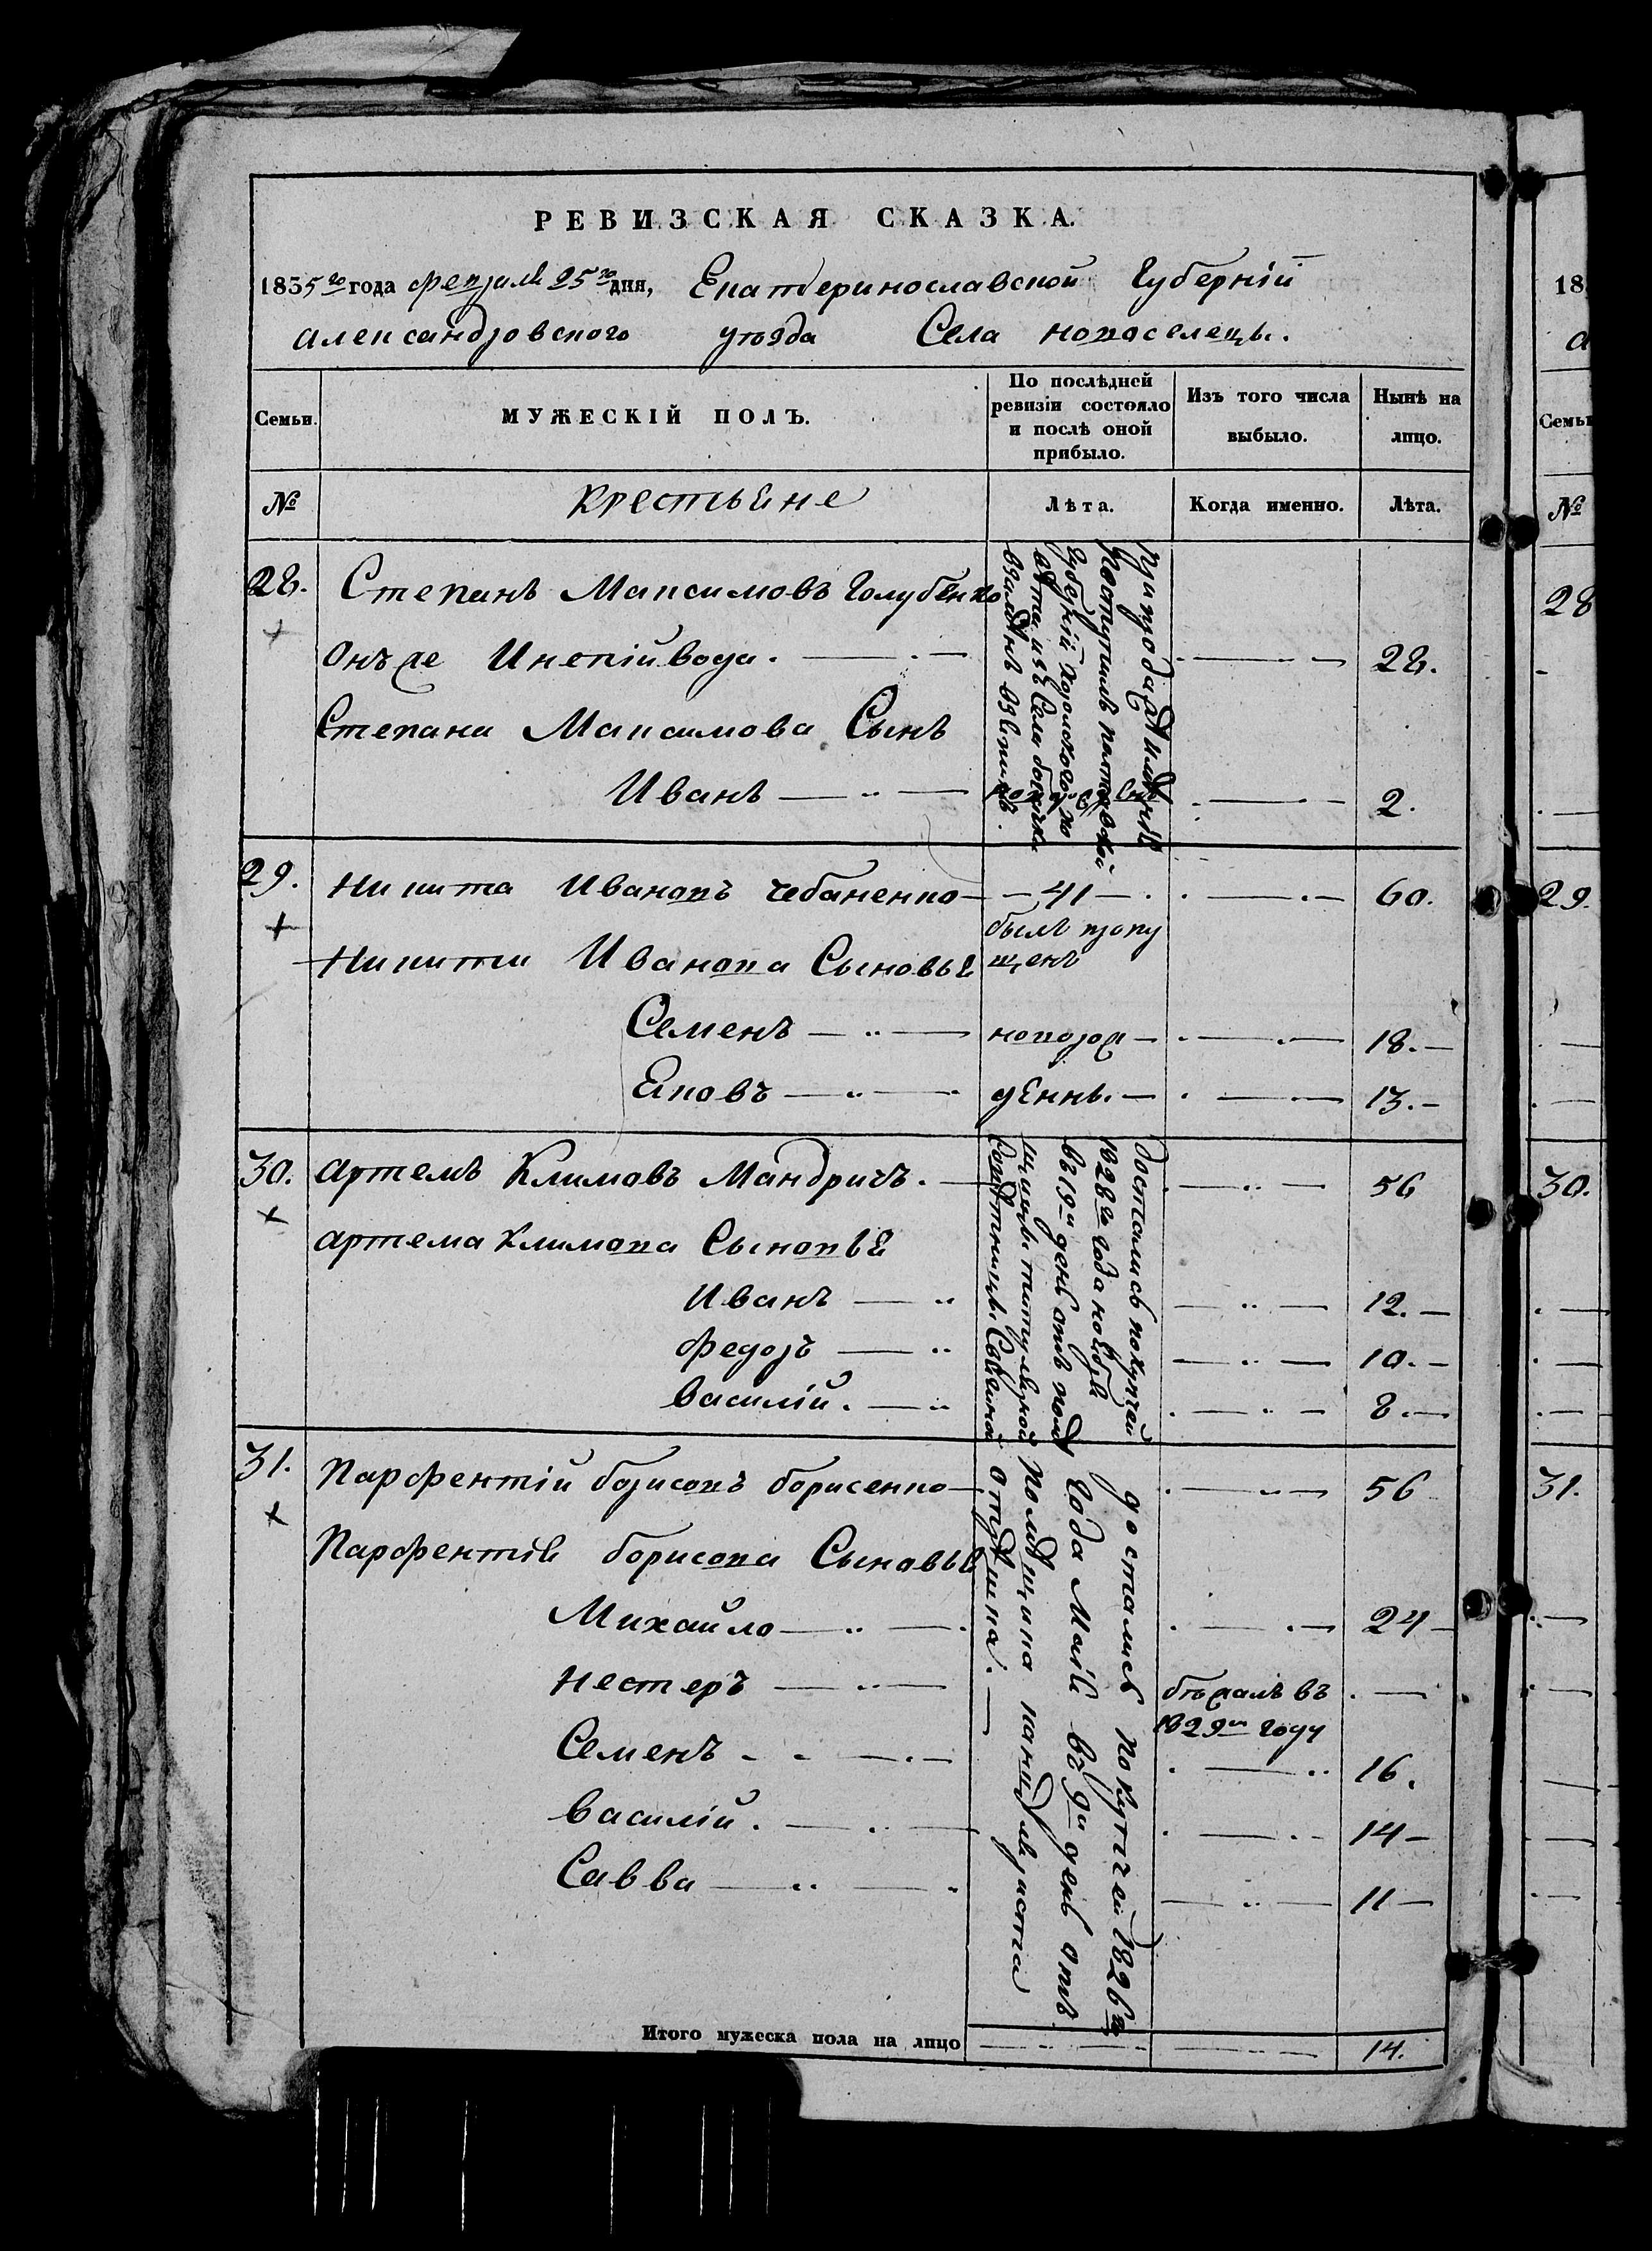 РЕВИЗСКАЯ СКАЗКА.
1835го года февраля 25го дня, Екатеринославской Губерніи
Александровского уѣзда Села новоселецы.
Семьи.
МУЖЕСКІЙ ПОЛЪ.
По послѣдней ревизіи состояло и послѣ оной прибыло.
Изъ того числа выбыло.
Нынѣ на лицо.
№
Крестьяне
Лѣта.
Когда именно.
Лѣта.
28. Степанъ Максимовъ Голубенко
Онъ же Инокійвода. 28.
Степана Максимова Сынъ
Иванъ 2.
29. Никита Ивановъ Чебаненко 41 60.
былъ пропу
Никиты Иванова Сыновья щенъ
Семенъ новорож 18.
Яковъ денны. 13.
30. Артемъ Климовъ Мандричъ. 56
Артема Климова Сыновья
Иванъ 12.
Федоръ 10.
Василій. 8.
достались покупкой
1828го года ноября
въ 19й день отъ помѣ
щицы титулярной
совѣтницы
31. Парфентій Борисовъ Борисенко 56
Парфентія Борисова Сыновья
Михайло 24
Нестеръ бѣжалъ въ
1829м году
Семенъ 16.
Василій. 14
Савва 11
достались покупкой 1826го
года Маія въ 9й день отъ
помѣщика
Итого мужеска пола на лицо 14.
18
Семьи
№
28
29.
30.
31.